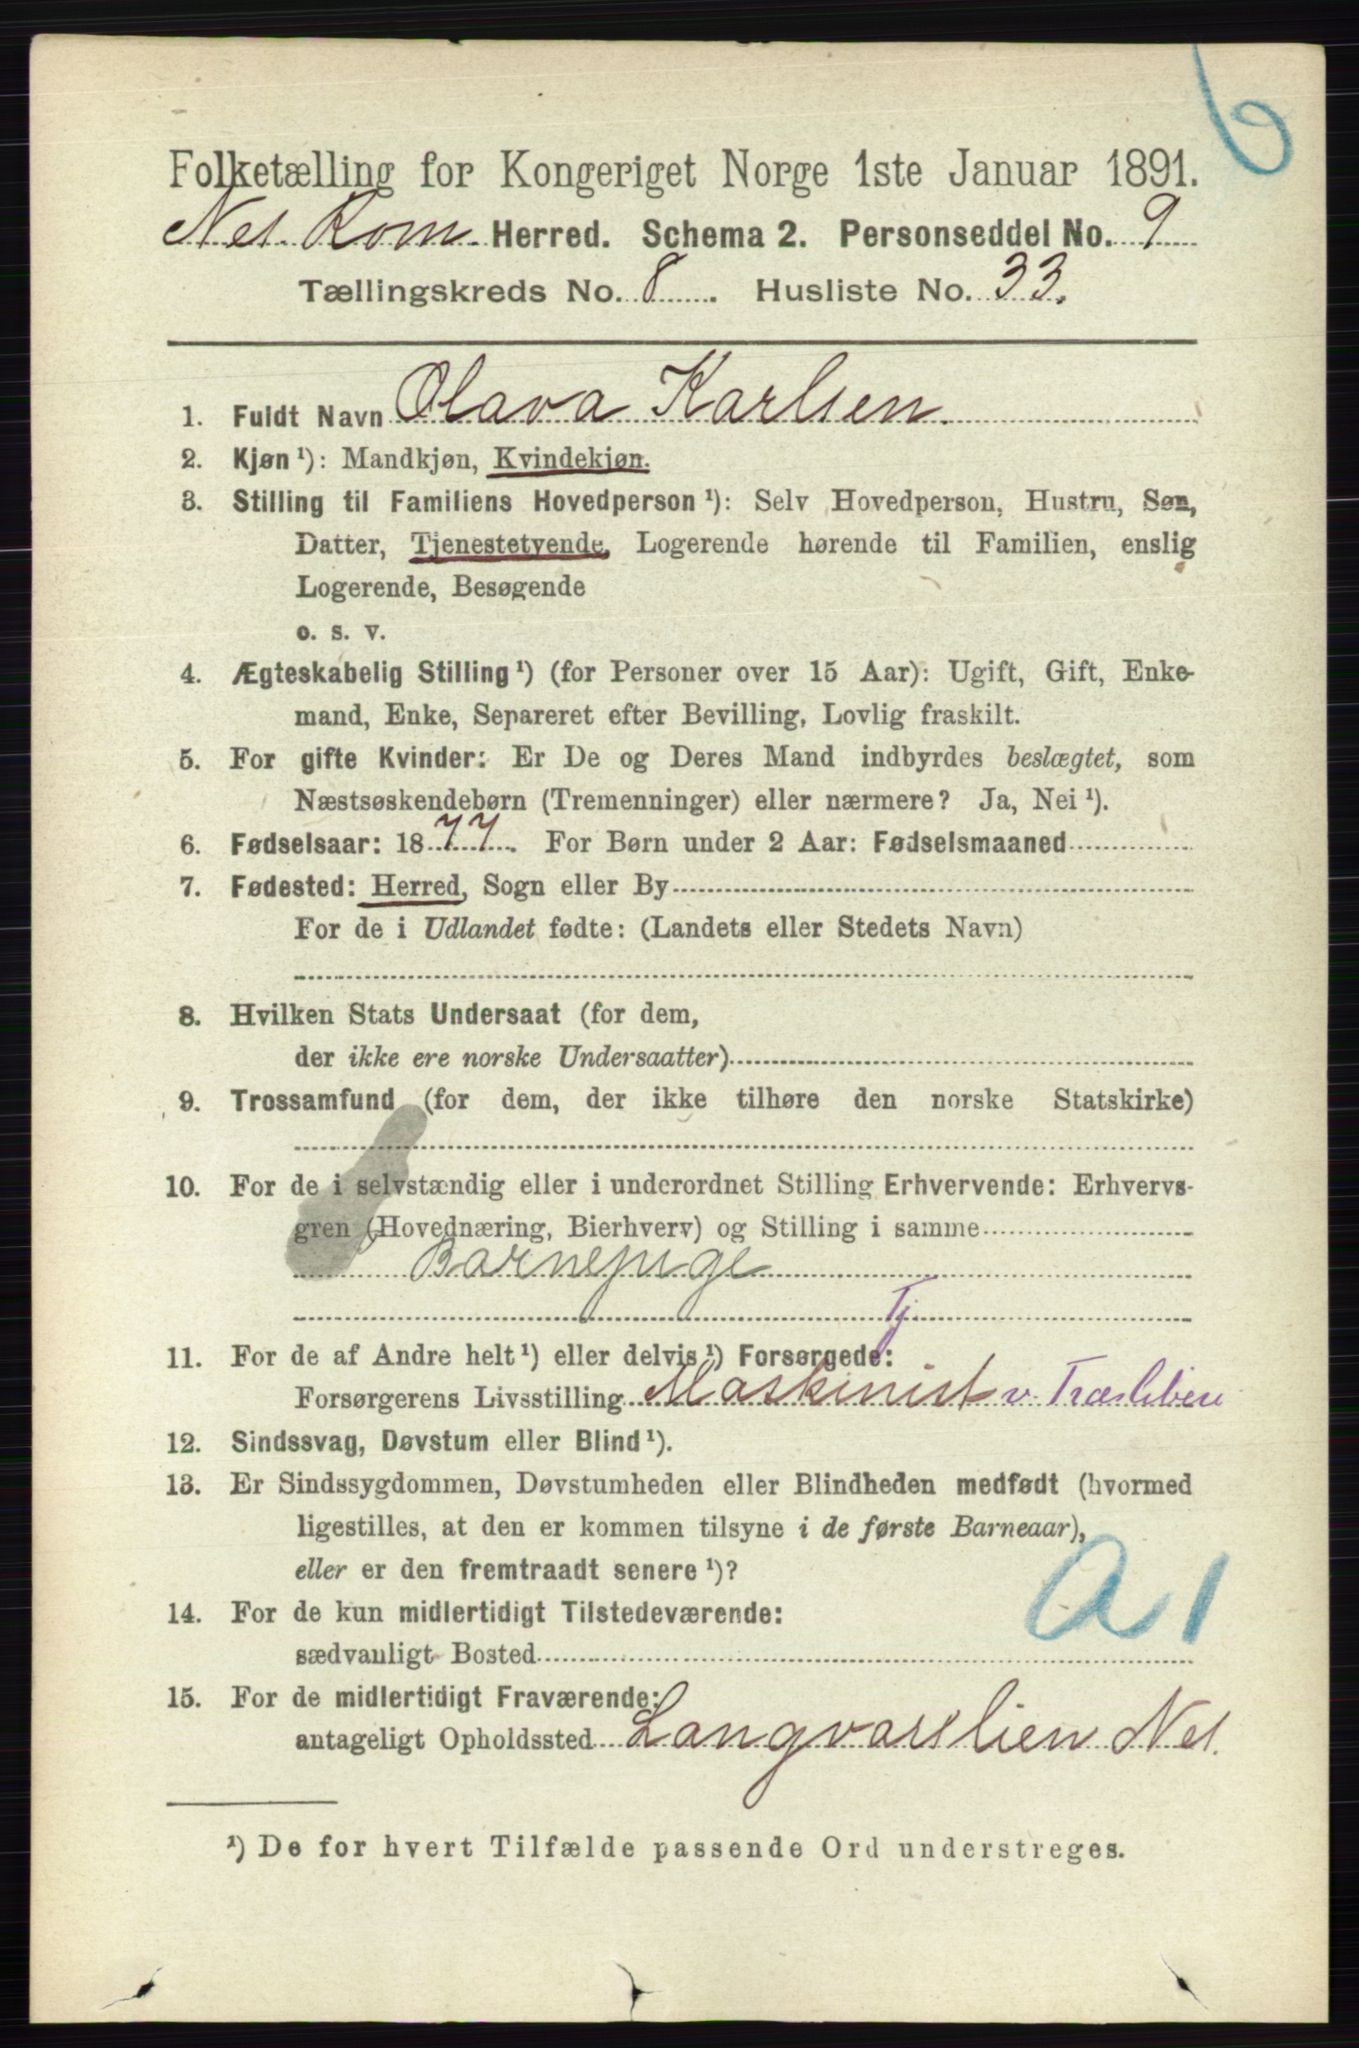 6
Folketælling for Kongeriget Norge 1ste Januar 1891.
Nes. Kom. Herred. Schema 2. Personseddel No. 9
Tællingskreds No. 8. Husliste No. 33.
1. Fuldt Navn Olava Karlsen.
2. Kjøn ¹): Mandkjøn, Kvindekjøn.
3. Stilling til Familiens Hovedperson ¹): Selv Hovedperson, Hustru, Søn,
Datter, Tjenestetyende, Logerende hørende til Familien, enslig
Logerende, Besøgende
o. s. v.
4. Ægteskabelig Stilling ¹) (for Personer over 15 Aar): Ugift, Gift, Enke-
mand, Enke, Separeret efter Bevilling, Lovlig fraskilt.
5. For gifte Kvinder: Er De og Deres Mand indbyrdes beslægtet, som
Næstsøskendebørn (Tremenninger) eller nærmere? Ja, Nei ¹).
6. Fødselsaar: 1877. For Børn under 2 Aar: Fødselsmaaned
7. Fødested: Herred, Sogn eller By
For de i Udlandet fødte: (Landets eller Stedets Navn)
8. Hvilken Stats Undersaat (for dem,
der ikke ere norske Undersaatter)
9. Trossamfund (for dem, der ikke tilhøre den norske Statskirke)
10. For de i selvstændig eller i underordnet Stilling Erhvervende: Erhvervs-
gren (Hovednæring, Bierhverv) og Stilling i samme
Barnepige
Tj.
11. For de af Andre helt ¹) eller delvis ¹) Forsørgede:
Forsørgerens Livsstilling Maskinist v. Træsliberi
12. Sindssvag, Døvstum eller Blind ¹).
13. Er Sindssygdommen, Døvstumheden eller Blindheden medfødt (hvormed
ligestilles, at den er kommen tilsyne i de første Barneaar),
eller er den fremtraadt senere ¹)?
a 1
14. For de kun midlertidigt Tilstedeværende:
sædvanligt Bosted
15. For de midlertidigt Fraværende:
antageligt Opholdssted Langvarslien Nes.
¹) De for hvert Tilfælde passende Ord understreges.